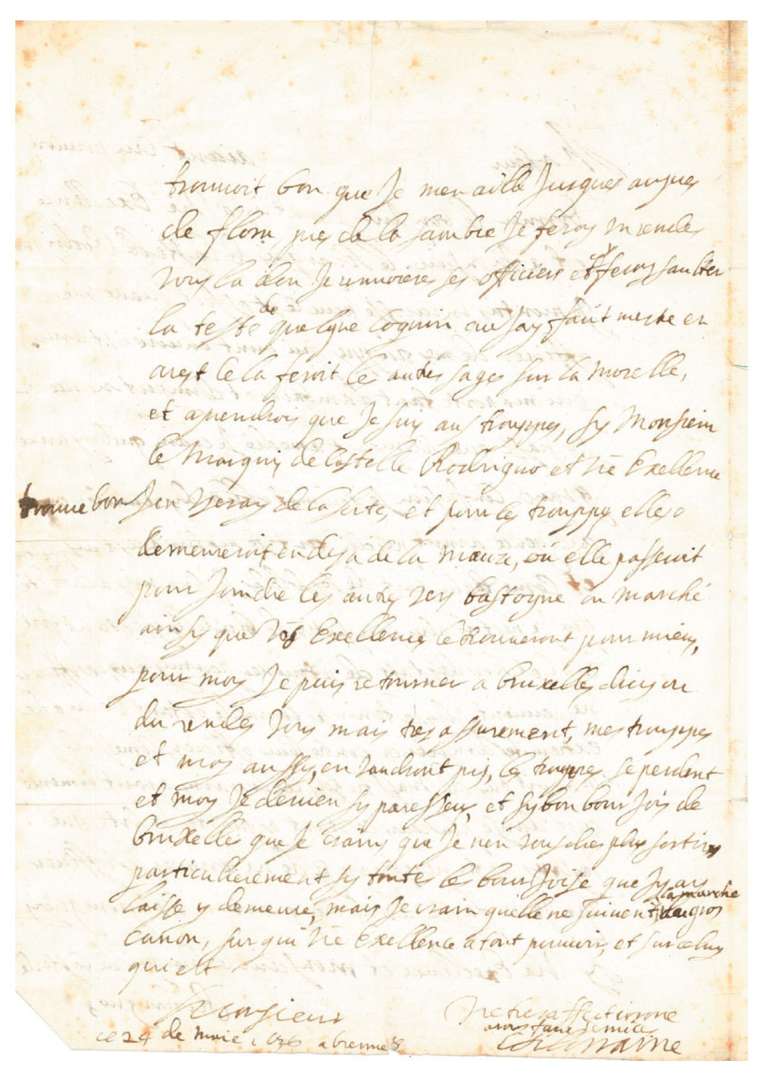 trouvoit bon que Je men aille Jusques aupres
de florn pres de la sambre Je feroy un rendes
vous la dou Je unvoieres ses officiers et feroy saulter
la teste de quelque coquin que Jay fait mestre en
arest le la feroit les autres sages sur la moselle,
et aprendrois que Je suy aus trouppes, sy Monsieur
le Marquis de Castelle Rodrigue et Vre Exellence
trouve bon Jen useray de la sorte, et pour les trouppes elle
demeureroit en desa de la meuze, ou elle passeroit
pour Joindre les autres vers bastogne ou marche
ainsy que Vos Exellences le trouveront pour mieu,
pour moy Je puis retourner a bruxelles dicy ou
du rendes vous mais tres assurement, mes trouppes
et moy aussy, en vaudront pis, les troupes se perdent
et moy Je devien sy paresseux, et sy bon bourjois de
bruxelle que Je crains que Je nen vous des plus sortir
particulierement sy toutes les bourjoise que Jy ay
laisse y demeure, mais Je crain quelle ne suivent la marche du gros
canon, sur qui Vre Exellence a tout pouvoir, et sur celuy
qui est
Monsieur
Vre tres affectionne
a vous faire service
Ch Lorraine
ce 24 de maie 1656 a brennes